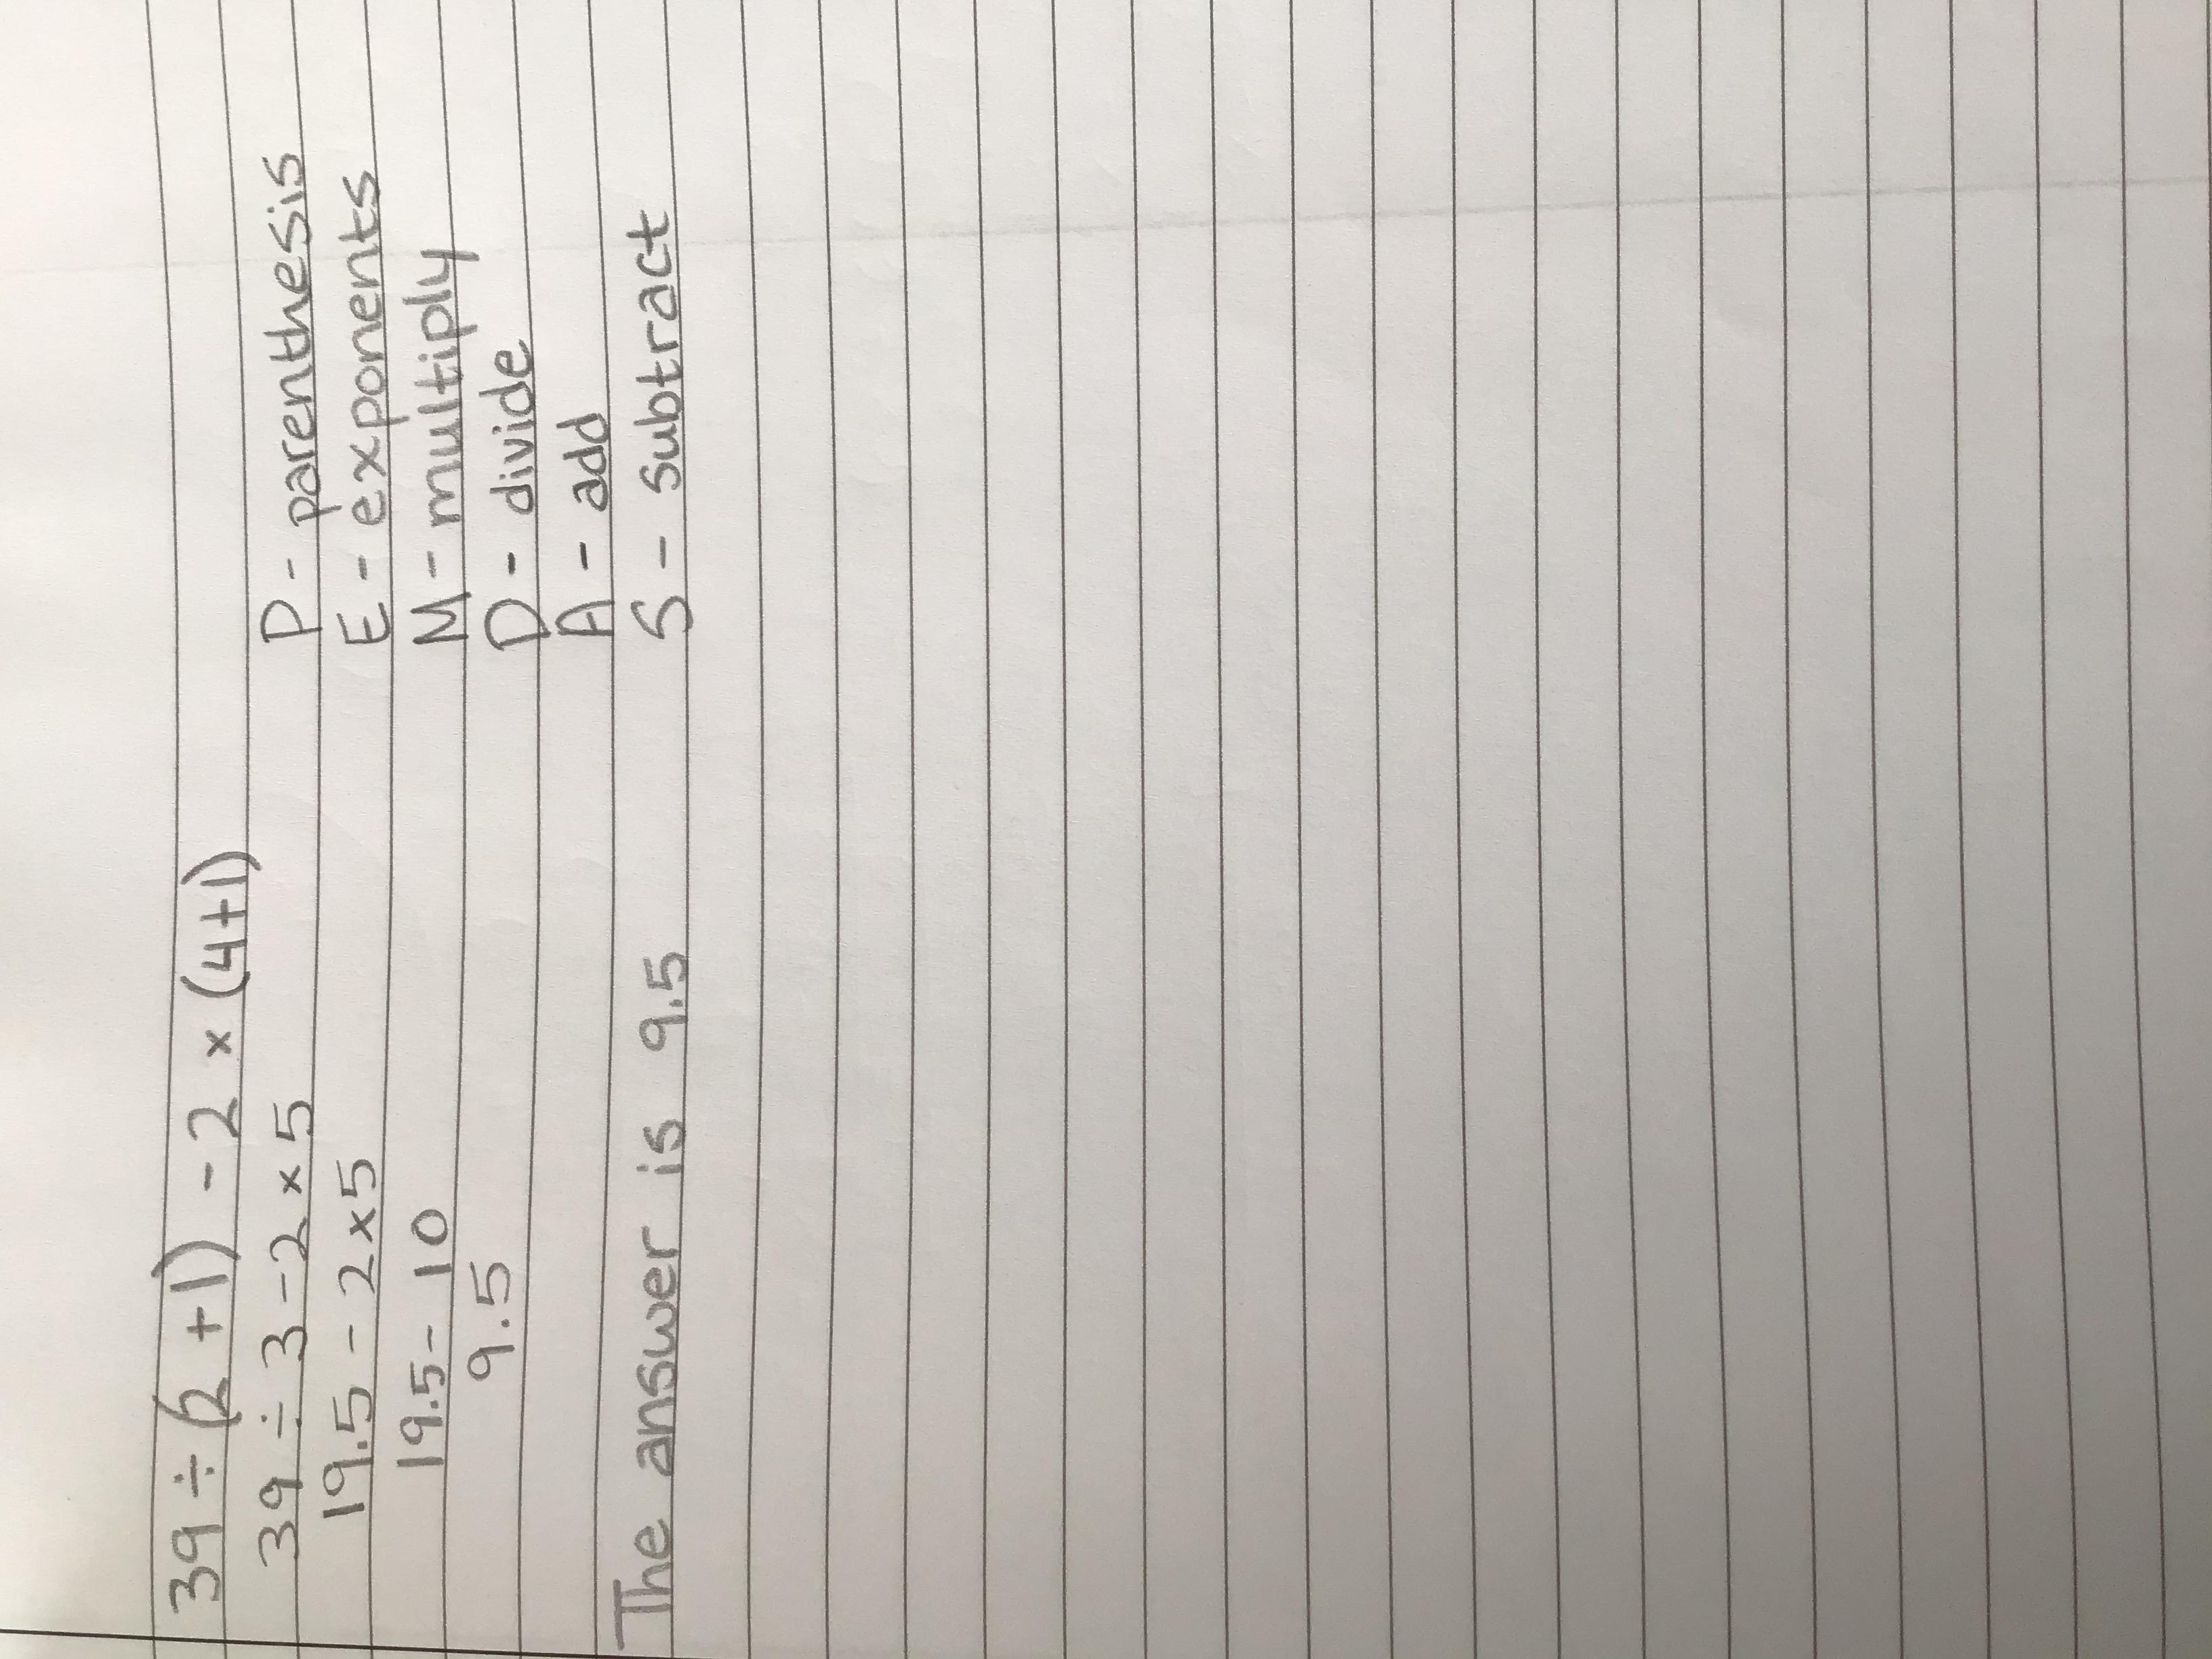 39 ÷ (2 + 1) - 2 × (4+1)
39 ÷ 3 - 2 × 5
19.5 - 2×5
19.5 - 10
9.5
The answer is 9.5
P - parenthesis
E - exponents
M - multiply
D - divide
A - add
S - subtract